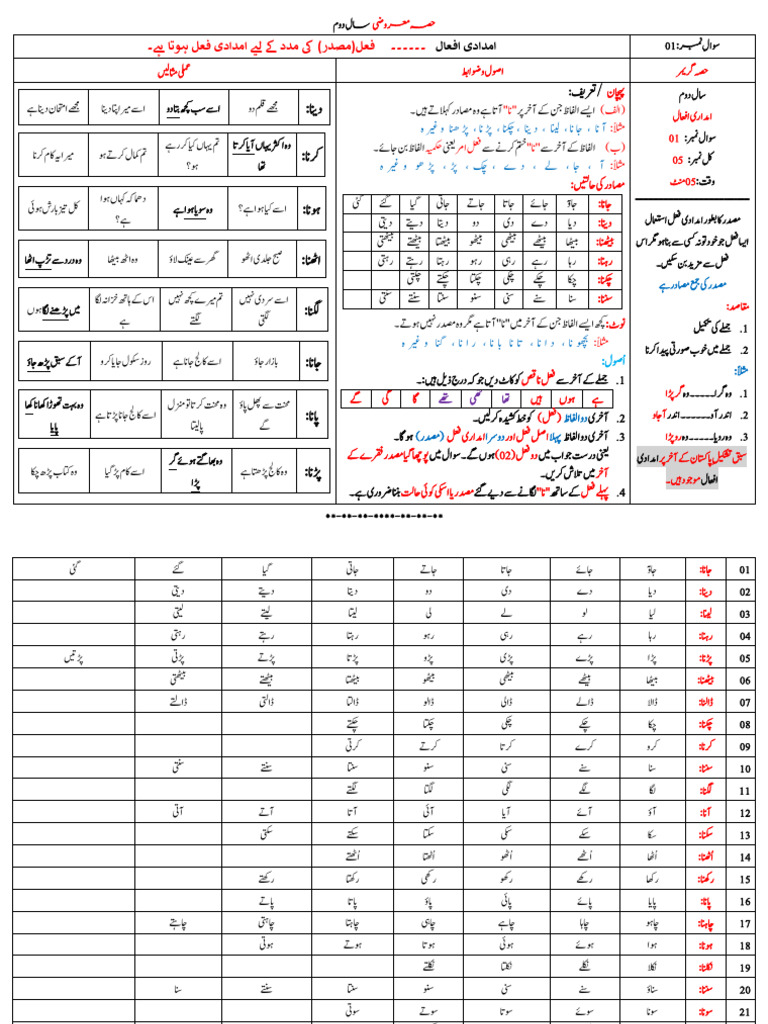 حصہ معروضی سال دوم
سوال نمبر: 01
امدادی افعال ------ فعل(مصدر) کی مدد کے لیے امدادی فعل ہوتا ہے۔
حصہ گریمر
اصول و ضوابط
عملی مثالیں
سال دوم
امدادی افعال
سوال نمبر: 01
کل نمبر: 05
وقت: 05 منٹ
مصدر کا بطور امدادی فعل استعمال
ایسا فعل جو خود تو نہ کسی سے بنا ہو مگر اس
فعل سے مزید بن سکیں۔
مصدر کی جمع مصادر ہے
مقاصد:
1. جملے کی تکمیل
2. جملے میں خوب صورتی پیدا کرنا
مثلاً:
1. وہ گرا۔۔۔۔۔وہ گر پڑا
2. اندر آو۔۔۔۔۔اندر آجاو
3. وہ رویا۔۔۔۔۔وہ رو پڑا
سبق تشکیل پاکستان کے آخر پر امدادی
افعال موجود ہیں۔
پہچان / تعریف:
(الف) ایسے الفاظ جن کے آخر پر "نا" آتا ہے وہ مصدر کہلاتے ہیں۔
مثلاً: آنا ، جانا ، لینا ، دینا ، چکنا ، پڑنا ، پڑھنا وغیرہ
(ب) الفاظ کے آخر سے "نا" ختم کرنے سے فعل امر یعنی حکمیہ الفاظ بن جائے۔
مثلاً: آ ، جا ، لے ، دے ، چک ، پڑ ، پڑھو وغیرہ
مصادر کی حالتیں:
جانا: جاؤ جائے جاتا جاتے جاتی گیا گئے گئی
دینا: دیا دے دی دو دیتا دیتے دیتی
بیٹھنا: بیٹھا بیٹھے بیٹھی بیٹھو بیٹھتا بیٹھتے بیٹھتی
رہنا: رہا رہے رہی رہو رہتا رہتے رہتی
چکنا: چکا چکے چکی چکتا چکتے چکتی
سننا: سنا سنے سنی سنو سنتا سنتے سنتی
نوٹ: کچھ ایسے الفاظ جن کے آخر میں "نا" آتا ہے مگر وہ مصدر نہیں ہوتے۔
مثلاً: بچھونا ، دانا ، تانا بانا ، رانا ، گنا وغیرہ
اُصول:
1. جملے کے آخر سے فعل ناقص کو کاٹ دیں جو کہ درج ذیل ہیں:۔
ہے ہوں ہیں تھا تھی تھے گا گی گے
2. آخری دو الفاظ (فعل) کو خط کشیدہ کر لیں۔
3. آخری دو الفاظ پہلا اصل فعل اور دوسرا امدادی فعل (مصدر) ہو گا۔
یعنی درست جواب میں دو فعل (02) ہوں گے۔ سوال میں پوچھا گیا مصدر فقرے کے
آخر میں تلاش کریں۔
4. پہلے فعل کے ساتھ "نا" لگانے سے دیے گئے مصدر یا اسکی کوئی حالت بننا ضروری ہے۔
دینا: مجھے قلم دو اسے سب کچھ بتا دو اسے میرا پتا دینا مجھے امتحان دینا ہے
کرنا: وہ اکثر یہاں آیا کرتا تھا تم یہاں کیا کر رہے ہو؟ تم کمال کرتے ہو میرا یہ کام کرنا
ہونا: اسے کیا ہوا ہے؟ وہ سویا ہوا ہے دھماکہ کہاں ہوا ہے؟ کل تیز بارش ہوئی
اٹھنا: صبح جلدی اٹھو گھر سے عینک لاؤ وہ اٹھ بیٹھا وہ درد سے تڑپ اٹھا
لگنا: اسے سردی نہیں لگتی تم میرے کچھ نہیں لگتے اس کے ہاتھ خزانہ لگا ہے میں پڑھنے لگا ہوں
جانا: بازار جاؤ اسے کالج جانا ہے روز سکول جایا کرو آکے سبق پڑھ جاؤ
پانا: محنت سے پھل پاؤ وہ محنت کرتا تو منزل پا لیتا اسے کالج جانا پڑتا ہے وہ بہت تھوڑا کھانا کھا پایا
پڑنا: وہ کالج پڑھتا ہے وہ بھاگتے ہوئے گر پڑا اسے کام پڑ گیا وہ کتاب پڑھ چکا
**--**--**-****--**--**--**
01 جانا: جاؤ جائے جاتا جاتے جاتی گیا گئے گئی
02 دینا: دیا دے دی دو دیتا دیتے دیتی
03 لینا: لیا لو لے لی لیتا لیتے لیتی
04 رہنا: رہا رہے رہی رہو رہتا رہتے رہتی
05 پڑنا: پڑا پڑے پڑی پڑو پڑتا پڑتے پڑتی پڑتیں
06 بیٹھنا: بیٹھا بیٹھے بیٹھی بیٹھو بیٹھتا بیٹھتے بیٹھتی
07 ڈالنا: ڈالا ڈالے ڈالی ڈالو ڈالتا ڈالتی ڈالتے
08 چکنا: چکا چکے چکی چکتا چکتے
09 کرنا: کرو کرے کرتا کرتے کرتی
10 سننا: سنا سنے سنی سنو سنتا سنتے سنتی
11 لگنا: لگا لگے لگی لگتا لگتے
12 آنا: آؤ آئے آیا آئی آتا آتے آتی
13 سکنا: سکا سکے سکی سکتا سکتے سکتی
14 اُٹھنا: اُٹھا اُٹھے اُٹھو اُٹھتا اُٹھتے
15 رکھنا: رکھا رکھے رکھو رکھی رکھتا رکھتے
16 پانا: پایا پائے پائی پاؤ پاتا پاتے
17 چاہنا: چاہو چاہا چاہے چاہی چاہتا چاہتی چاہتے
18 ہونا: ہوا ہوئے ہوئی ہوتا ہوتے ہوتی
19 نکلنا: نکلا نکلے نکلتا نکلتے
20 سننا: سناؤ سنے سنی سنو سنتا سنتے سنا
21 سونا: سونا سوئے سوتا سوتے سوتی